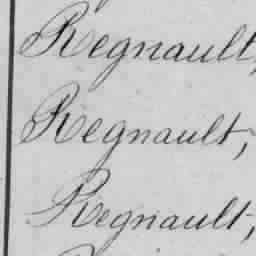 Regnault,
Regnault,
Regnault,